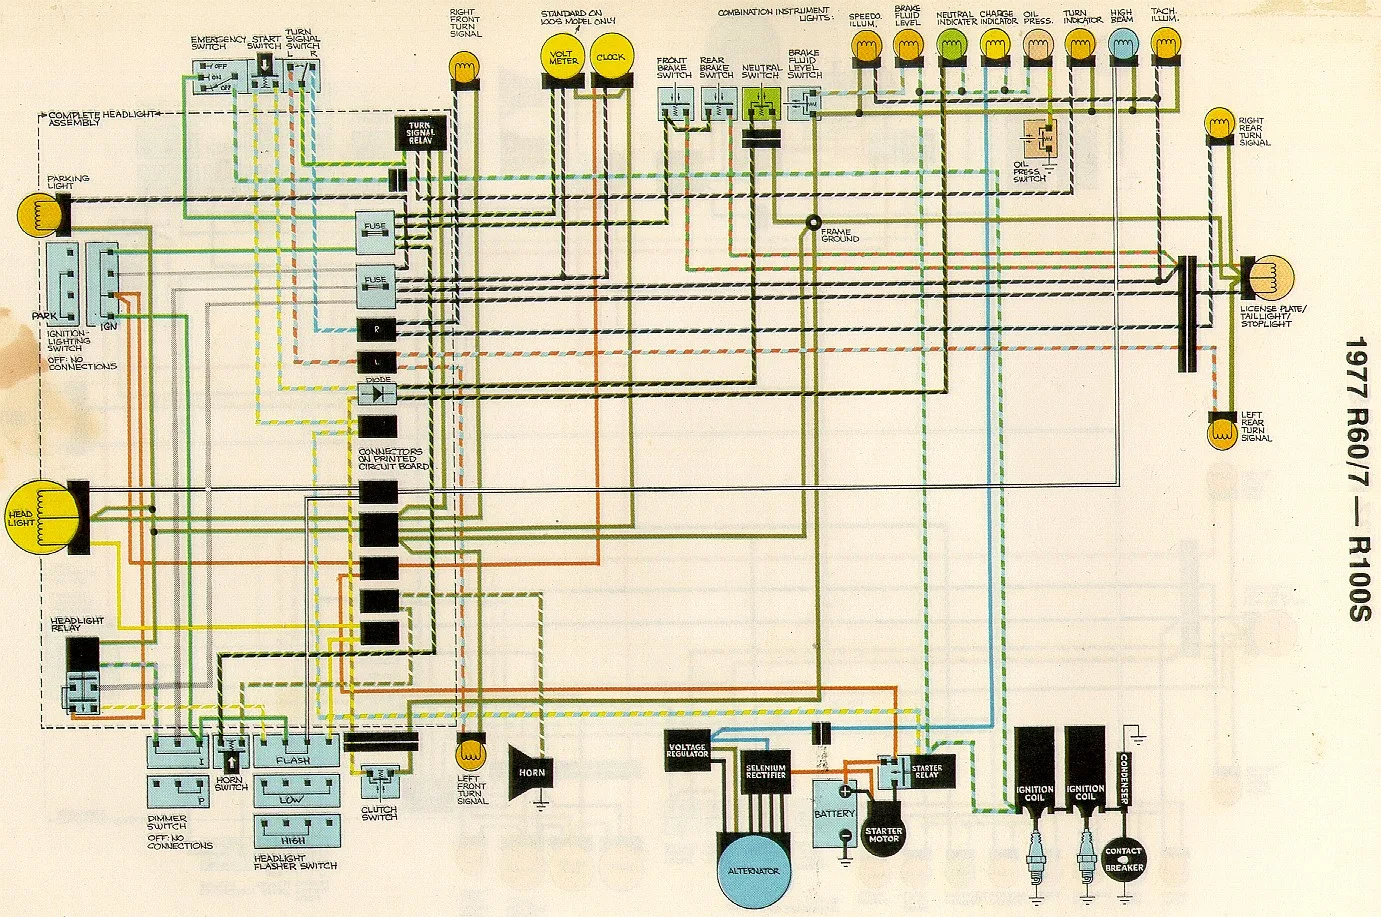 EMERGENCY
SWITCH
START
SWITCH
TURN
SIGNAL
SWITCH
L R
OFF
ON
OFF
RIGHT
FRONT
TURN
SIGNAL
STANDARD ON
100S MODEL ONLY
VOLT
METER
CLOCK
COMBINATION INSTRUMENT
LIGHTS:
SPEEDO.
ILLUM.
BRAKE
FLUID
LEVEL
NEUTRAL
INDICATER
CHARGE
INDICATOR
OIL
PRESS.
TURN
INDICATOR
HIGH
BEAM
TACH.
ILLUM.
FRONT
BRAKE
SWITCH
REAR
BRAKE
SWITCH
NEUTRAL
SWITCH
BRAKE
FLUID
LEVEL
SWITCH
COMPLETE HEADLIGHT
ASSEMBLY
TURN
SIGNAL
RELAY
RIGHT
REAR
TURN
SIGNAL
OIL
PRESS.
SWITCH
PARKING
LIGHT
FUSE
FRAME
GROUND
FUSE
PARK
IGN
IGNITION-
LIGHTING
SWITCH
OFF: NO
CONNECTIONS
R
L
DIODE
LICENSE PLATE/
TAILLIGHT/
STOPLIGHT
1977 R60/7 — R100S
LEFT
REAR
TURN
SIGNAL
CONNECTORS
ON PRINTED
CIRCUIT BOARD
HEAD
LIGHT
HEADLIGHT
RELAY
I
P
DIMMER
SWITCH
OFF: NO
CONNECTIONS
HORN
SWITCH
FLASH
LOW
HIGH
HEADLIGHT
FLASHER SWITCH
CLUTCH
SWITCH
LEFT
FRONT
TURN
SIGNAL
HORN
VOLTAGE
REGULATOR
SELENIUM
RECTIFIER
ALTERNATOR
BATTERY
+
-
STARTER
RELAY
STARTER
MOTOR
IGNITION
COIL
IGNITION
COIL
CONDENSER
CONTACT
BREAKER